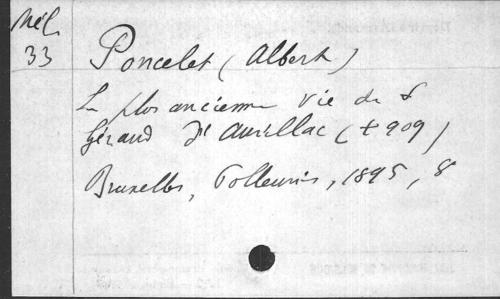 Mél.
33
Poncelet (Albert)
La plus ancienne vie de S
Géraud d'Aurillac (+ 909)
Bruxelles, Polleunis, 1895, 8°